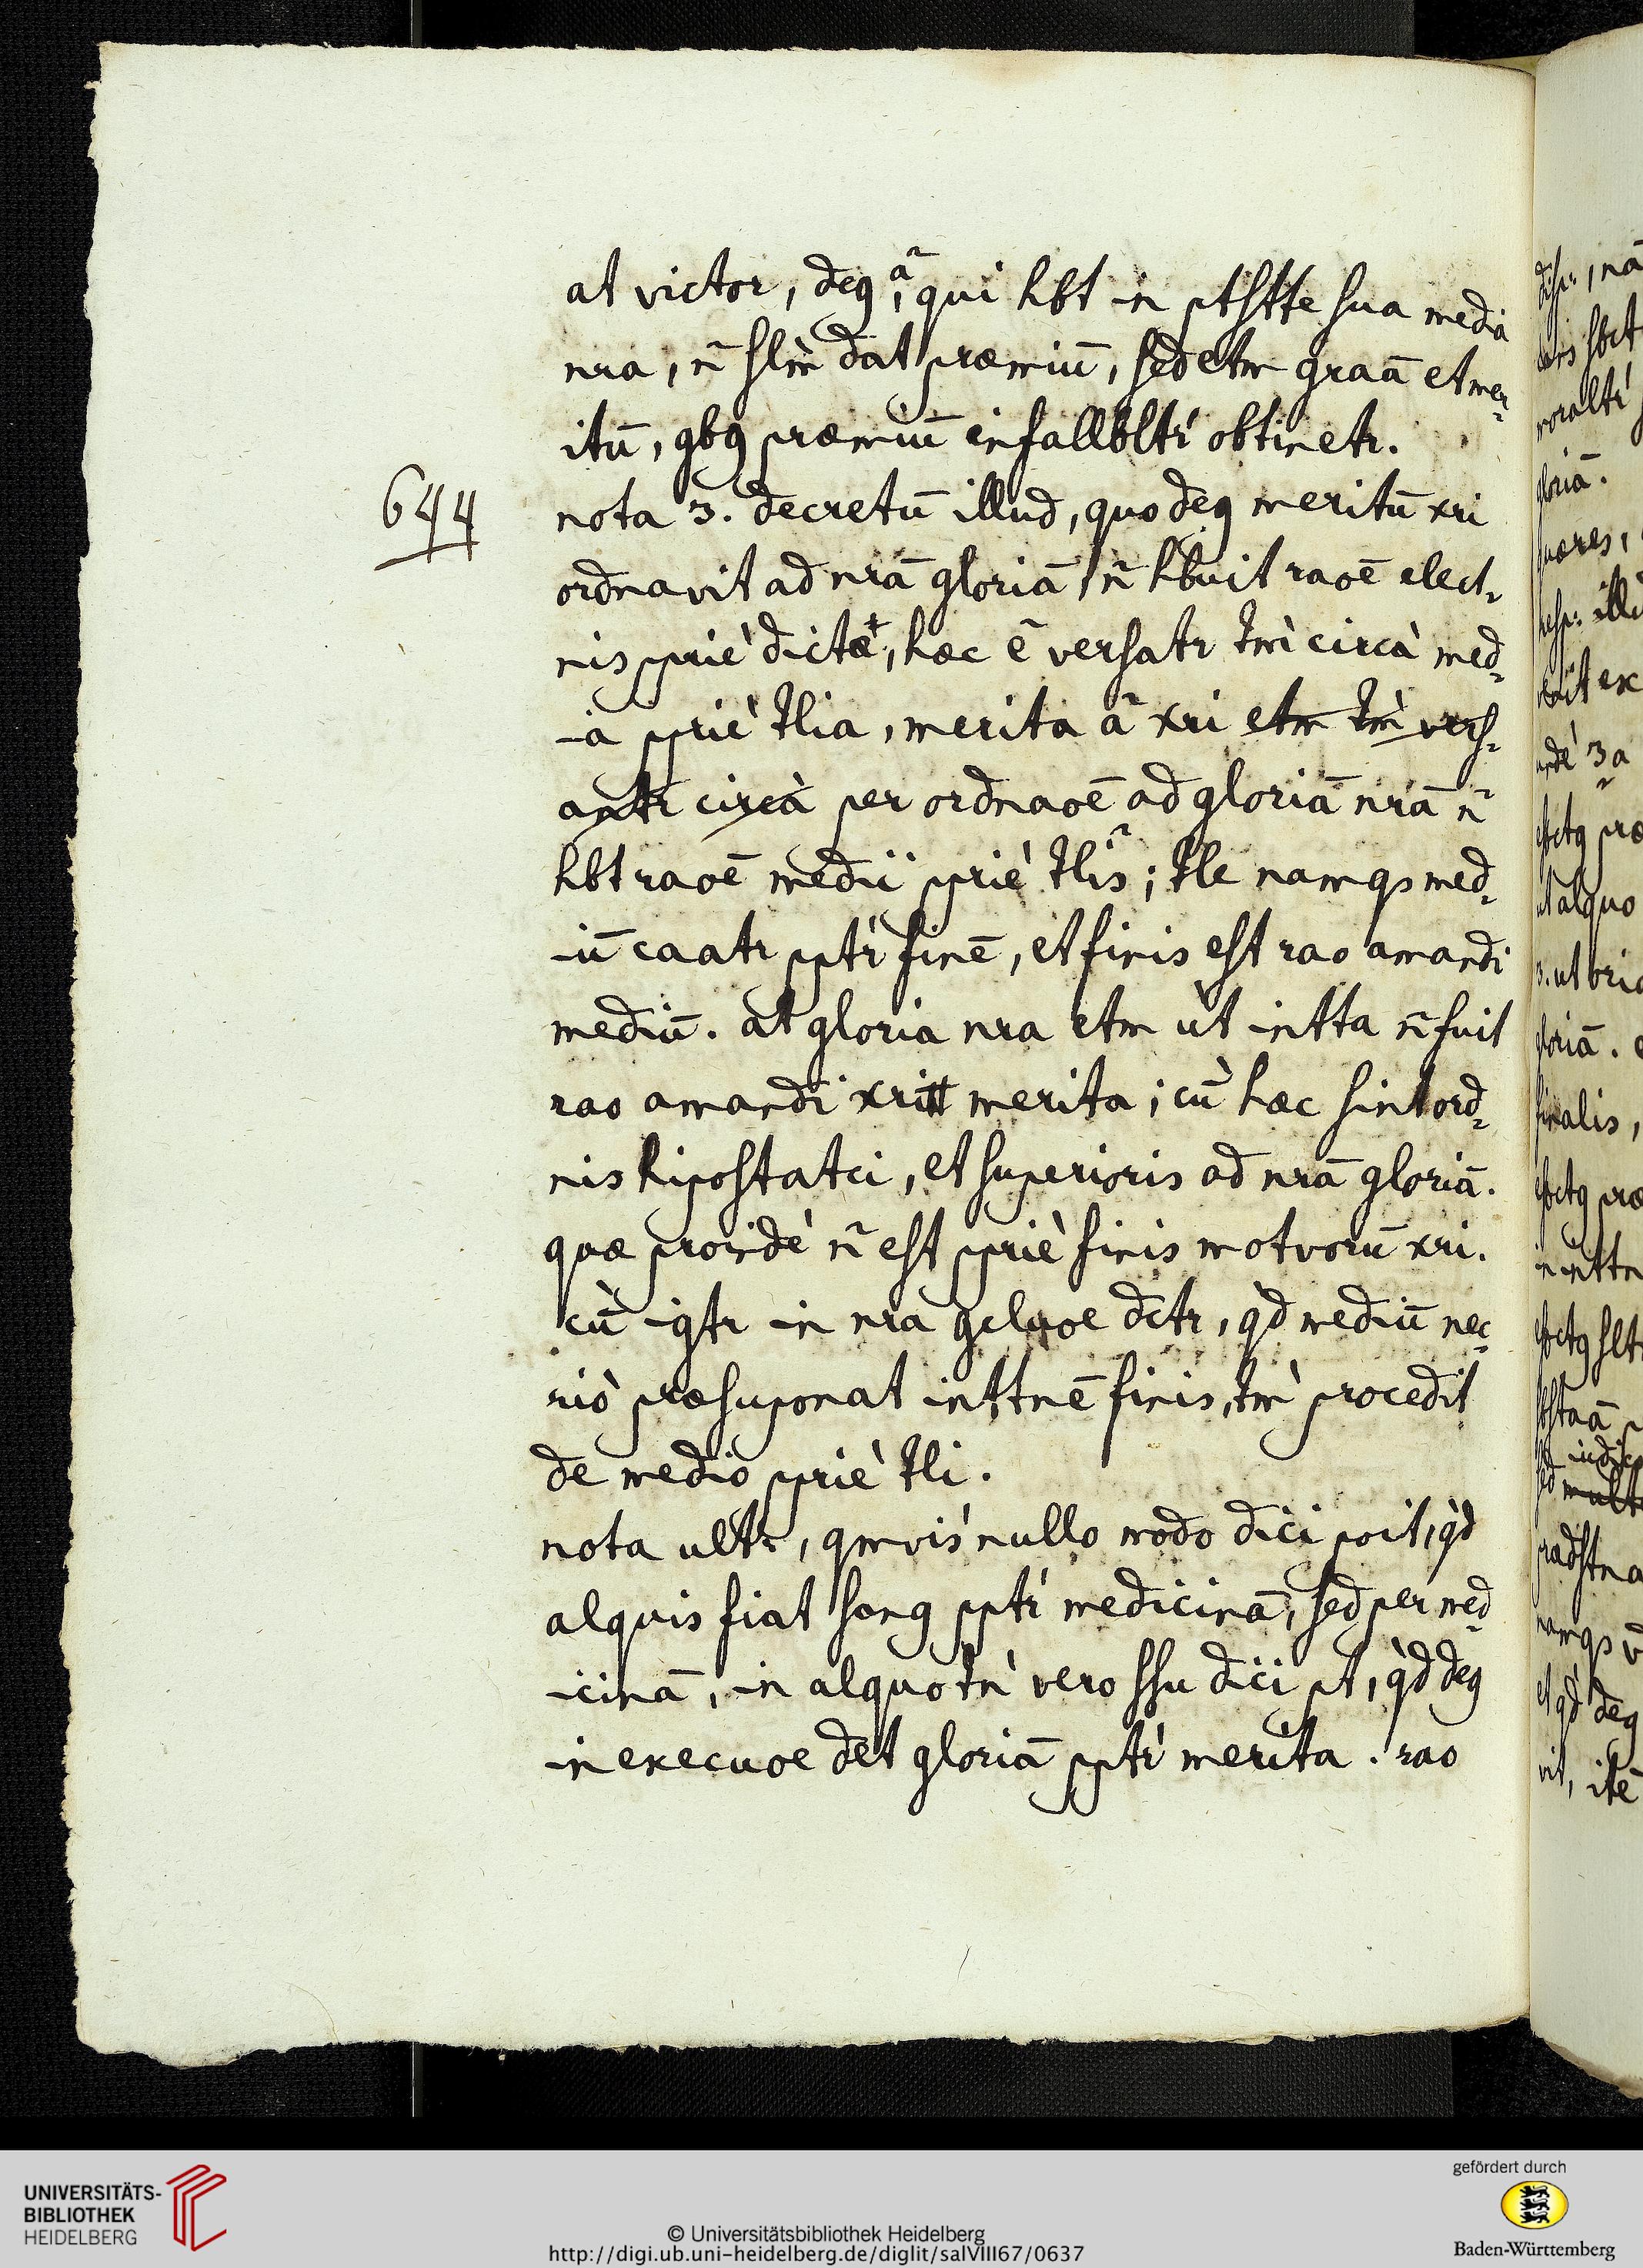 at victor, deq ā, qui hbt in ptstte sua media
nra, ñ slm̀ dat præmiū, sed etm graā et mer-
itū, qbq præmiū infallbltr̀ obtinetr.
644
nota 3. decretū illud, quo deq meritū xri
ordnavit ad nrā gloriā, ñ hbuit raoē elect-
nis ppriè dictæ, hæc ē versatr tm̀ circà med-
ia ppriè tlia, merita ā xri etm tm̀ vers-
antr circà per ordnaoē ad gloriā nrā ñ
hbt raoē medii ppriè tlis; tle namqs med-
iū caatr pptr̀ finē, et finis est rao amandi
mediū. at gloria nra etm ùt intta ñ fuit
rao amandi xri merita; cū̀ hæc sint ord-
nis hipostatci, et superioris ad nrā gloriā.
quæ proindè ñ est ppriè finis motvorū xri.
cū̀ igtr in nra gcluoe dctr, qd̀ mediū nec-
riò præsuponat inttnē finis, tm̀ procedit
de medio ppriè tli.
nota ultr, qmvis nullo modo dici poit, qd̀
alquis fiat sanq pptr̀ medicinā, sed per med-
icinā, in alquo tǹ vero ssu dici pt, qd̀ deq
in execuoe det gloriā pptr̀ merita. rao
UNIVERSITÄTS-
BIBLIOTHEK
HEIDELBERG
© Universitätsbibliothek Heidelberg
http://digi.ub.uni-heidelberg.de/diglit/salVIII67/0637
gefördert durch
Baden-Württemberg